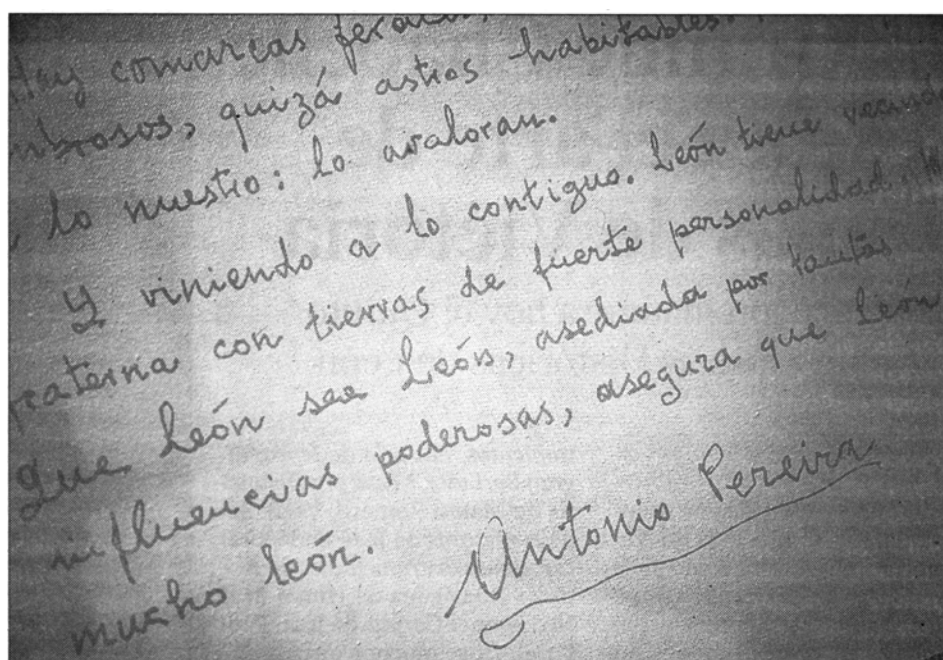 Hay comarcas
quizá astros habitables.
lo nuestro: lo avaloran.
Y viniendo a lo contiguo. León tiene
fraterna con tierras de fuerte personalidad.
Que León sea León, asediada por tantas
influencias poderosas, asegura que León
mucho león.
Antonio Pereira